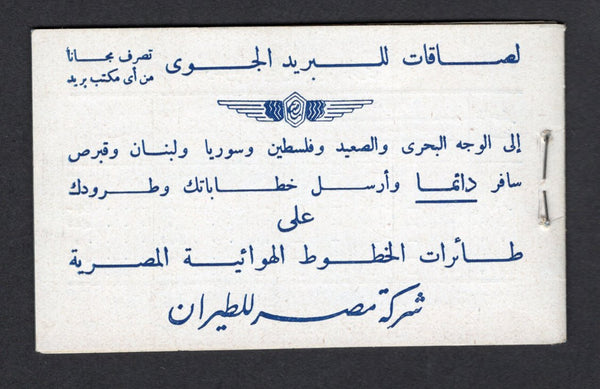 لصاقات للبريد الجوى تصرف مجاناً
من أى مكتب بريد
إلى الوجه البحرى والصعيد وفلسطين وسوريا ولبنان وقبرص
سافر دائما وأرسل خطاباتك وطرودك
على
طائرات الخطوط الهوائية المصرية
شركة مصر للطيران